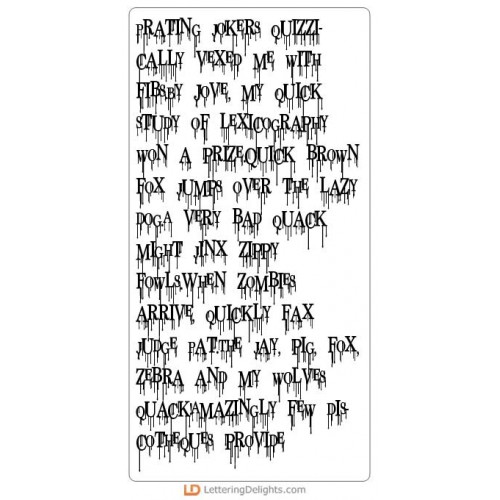 PRATING JOKERS QUIZZI-
CALLY VEXED ME WITH
FIBS.BY JOVE, MY QUICK
STUDY OF LEXICOGRAPHY
WON A PRIZE.QUICK BROWN
FOX JUMPS OVER THE LAZY
DOG.A VERY BAD QUACK
MIGHT JINX ZIPPY
FOWLS.WHEN ZOMBIES
ARRIVE, QUICKLY FAX
JUDGE PAT.THE JAY, PIG, FOX,
ZEBRA AND MY WOLVES
QUACK!AMAZINGLY FEW DIS-
COTHEQUES PROVIDE
LD LetteringDelights.com